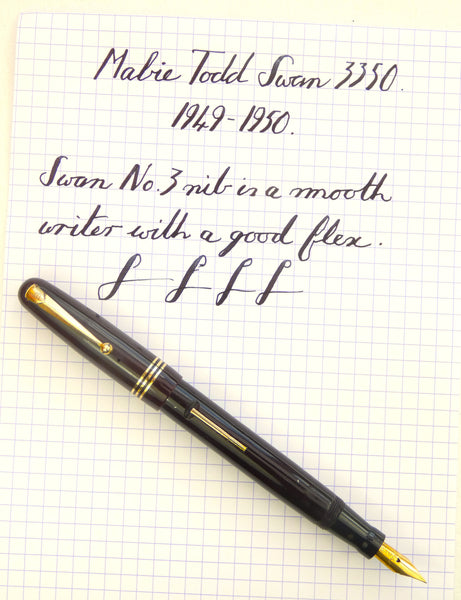 Mabie Todd Swan 3350.
1949-1950.
Swan No.3 nib is a mooth
writer with a good flex.